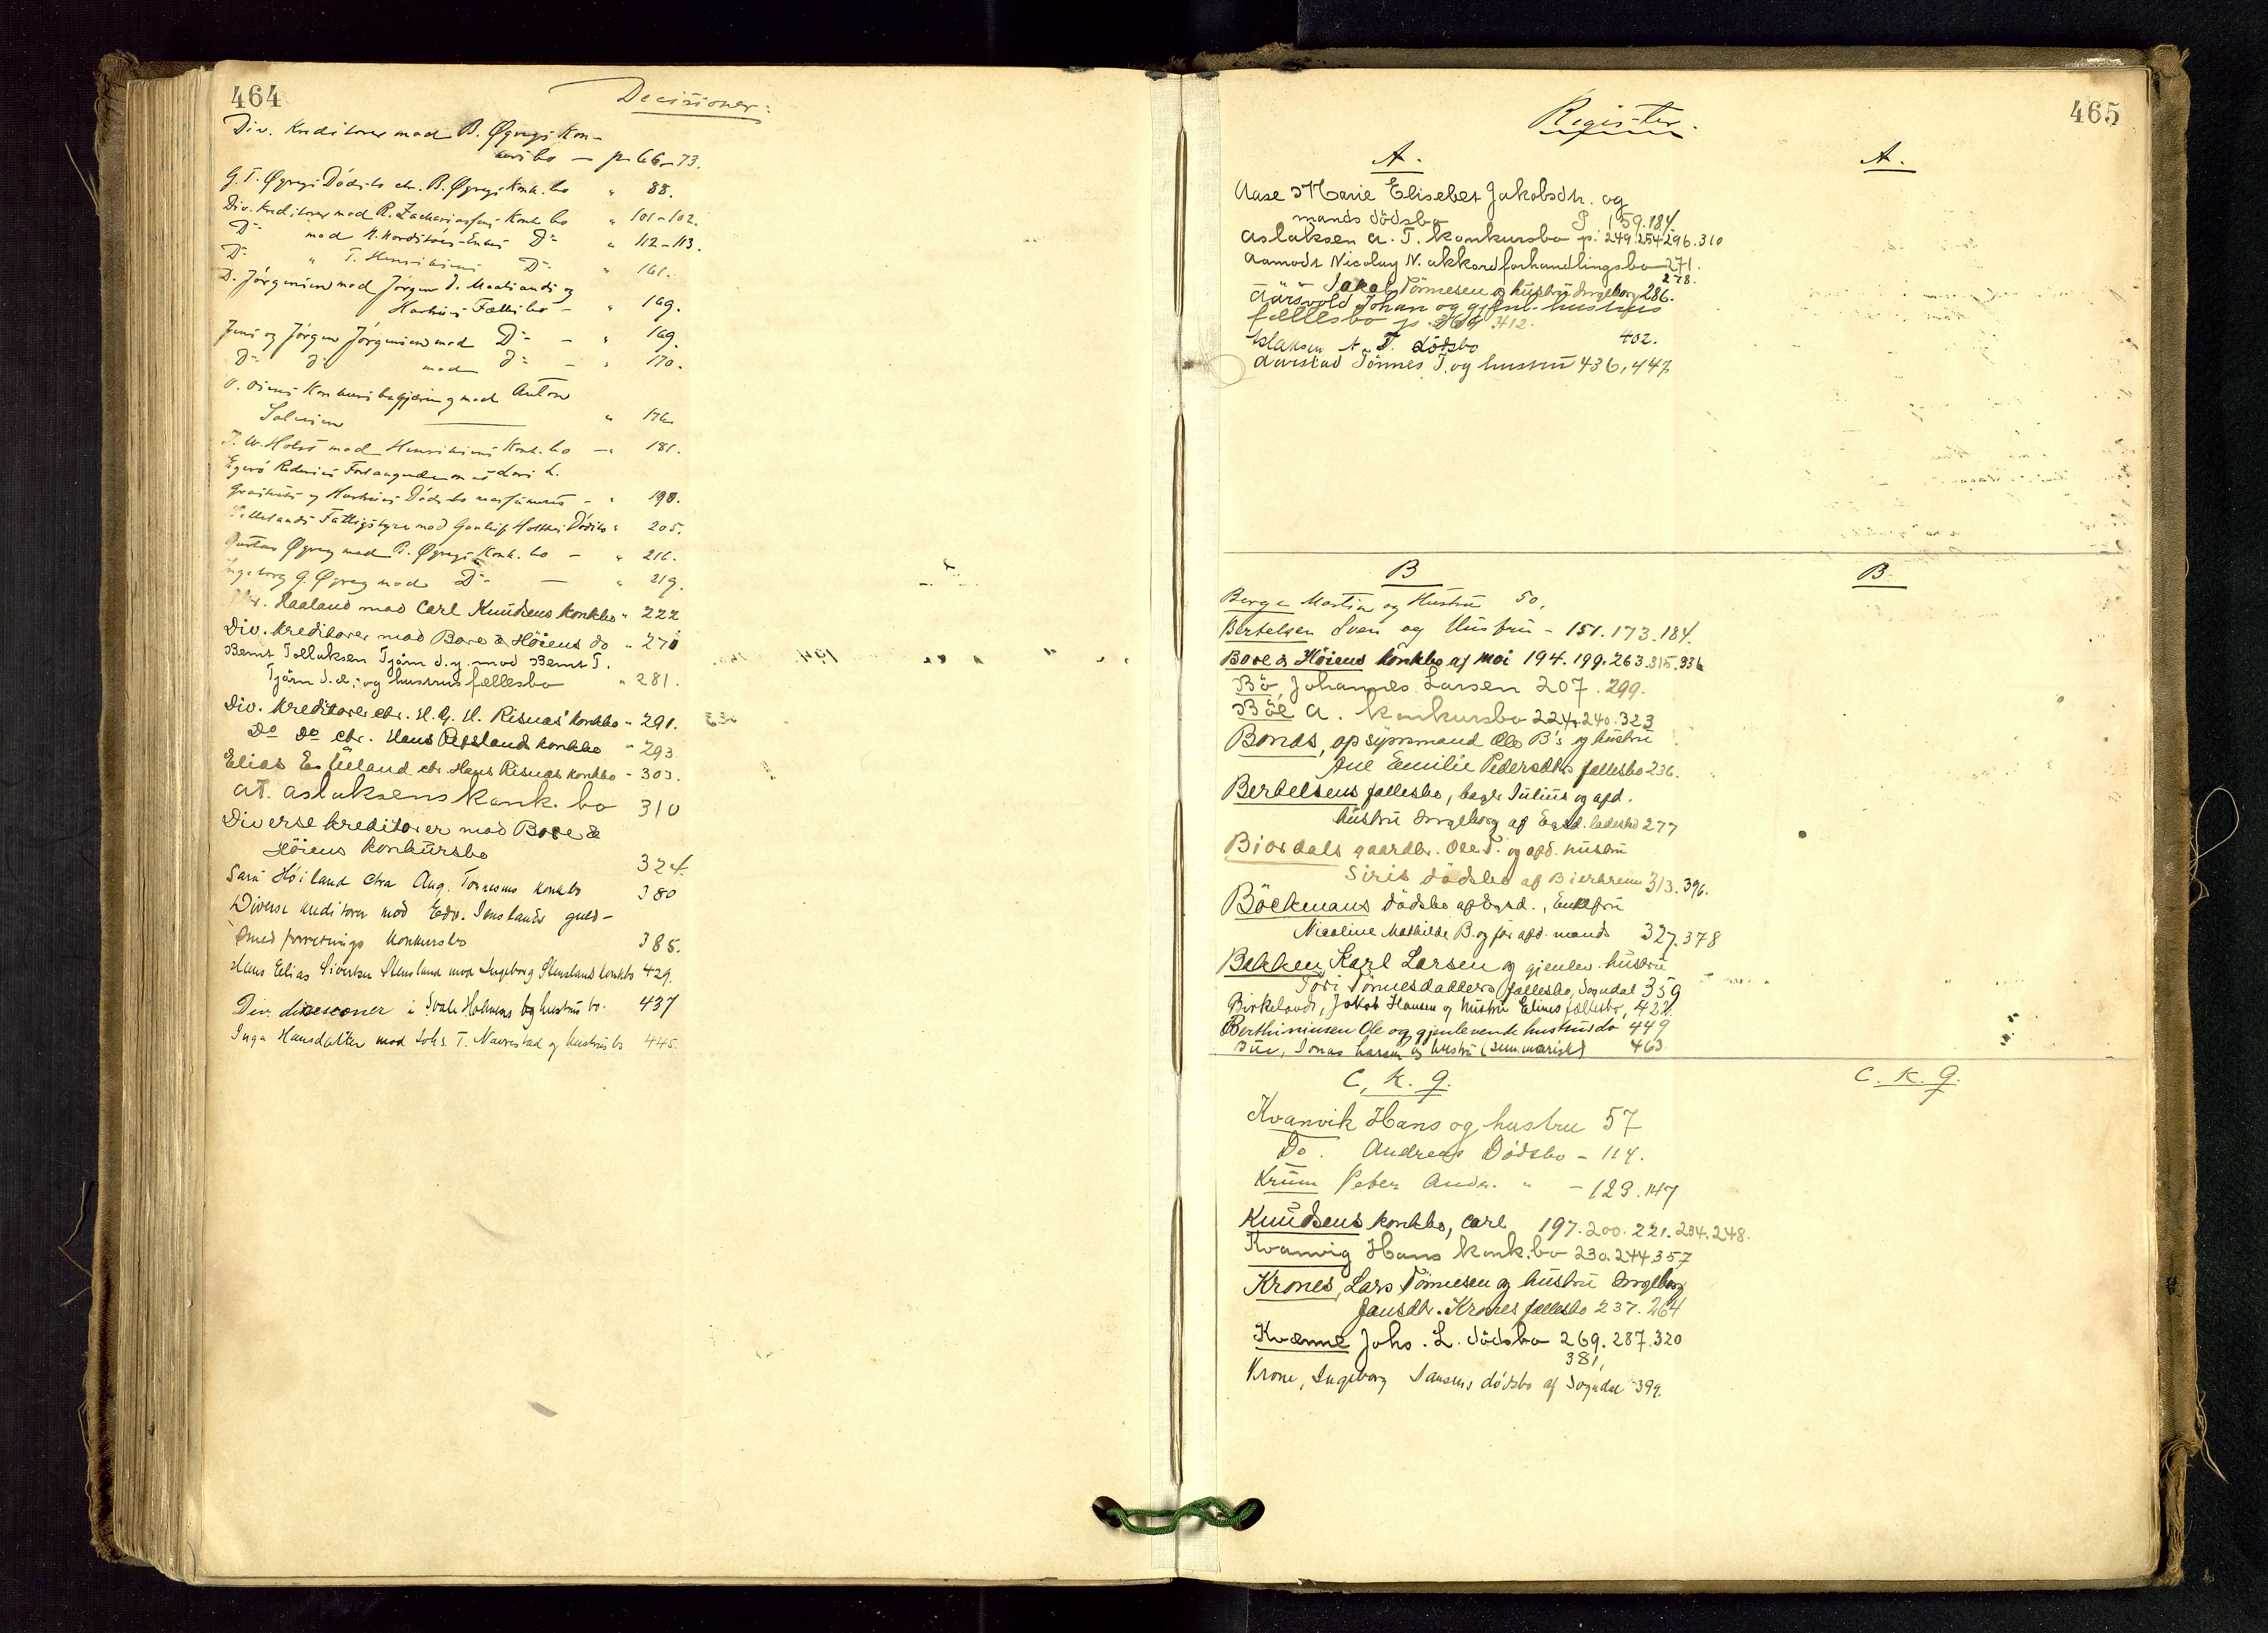 464
Decisioner:
Div. Kreditorer mod B. Øgreys Kon-
kursbo — p. 66-73.
G. T. Øgreys Dödsbo ctr. B. Øgreys Konk. bo " 88.
Div. Kreditorer mod R. Zachariassens Konk. bo " 101-102.
Do mod Do " 112-113.
Do " T. Henrichsens Do " 161.
D. Jörgensen mod Jörgen J. Maalands og
Hustrus Fællesbo - " 169.
Jens og Jörgen Jörgensen mod Do - " 169.
Do Do mod Do - " 170.
Konkursbegjæring mod Anton
Salvesen " 176.
P. W. Holst mod Henrichsens Konk. bo — " 181.
Egerö Rederies Forlangende om at Lars L.
Graatuits og Hustrus Dödsbo - " 190.
Hellelands Fattigstyre mod Dödsbo " 205.
Gustav Øgrey mod B. Øgreys Konk. bo - " 216.
Ingeborg G. Øgrey mod Do — " 219.
Chr. Haaland mod Carl Knudsens konkbo " 222
Div. kreditorer mod Bore & Höiens do " 270
Bernt Tollaksen Tjörn d.y. mod Bernt T.
Tjörn d.æ. og hustrus fællesbo " 281.
Div. kreditorer ctr. H. G. H. Risnas' konkbo " 291.
Do do ctr. Hans Refslands konkbo " 293
Elias E. Ueland ctr. Hans Risnas konkbo - 303.
A.T. Aslaksens konk. bo 310
Diverse kreditorer mod Bore &
Höiens konkursbo 324.
Sara Höiland ctra Aug. Tönnesens konkbo 380
Diverse kreditorer mod Edv. Jonslands guld-
smed forretnings konkursbo 385.
Hans Elias Sivertsen Stensland mod Ingeborg Stenslands konkbo 429.
Div. disesioner i Svale Holmens og hustrus bo. 437
Inga Hansdatter mod Johs. T. Navrestad og hustrus bo 445.
465
Register.
A. A.
Aase Marie Elisebet Jakobsdtr. og
mands dödsbo P 159.184.
Aslaksen A. T. konkursbo p. 249.254.296.310
Aamodt Nicolay N. akkordforhandlingsbo 271.
278.
Jakob Tönnesen og hustru Ingeborg 286.
Aarsvold Johan og gjenl. hustrus
fællesbo p. 369 412.
Aslaksen A. T. dödsbo 402.
Aarstad Tönnes T. og hustru 436, 447
B B.
Berge Martin og Hustru 50.
Bertelsen Sven og Hustru - 151.173.184.
Bore & Höiens konkbo af Moi 194.199.263.315.336
Bö, Johannes Larsen 207. 299.
Böe A. konkursbo 224.240.323
Bonds, opsynsmand Ole B's og hustru
Ane Emilie Pedersdtrs fællesbo 236.
Bertelsens fællesbo, bager Julius og afd.
hustru Ingeborg af Egsd. ladested 277
Biordals gaardbr. Ole T. og afd. hustru
Siris dödsbo af Bjerkreim 313.396.
Böckmans dödsbo af Egsd., Enkefru
Nicoline Mathilde B. og før afd. mands 327.378
Bakken, Karl Larsen og gjenlev. hustru
Töri Tönnesdatters fællesbo, Sogndal 359
Birkelands, Jakob Hansen og hustru Elines fællesbo, 422.
Berthiniusen Ole og gjenlevende hustrus do 449
Bue, Jonas Larsen og hustru (summarisk) 463.
C. K. Q. C. K. Q.
Kvanvik Hans og hustru 57
Do. Andreas Dödsbo - 114.
Krüm Peter Andr. " - 129.147
Knudsens konkbo, Carl 197.200.221.234.248.
Kvanvig Hans konk.bo 230.244.357
Krones, Lars Tönnesen og hustru Ingeborg
Jansdtr. Krones fællesbo 237.264
Kvænne Johs. L. dödsbo 269.287.320
381,
Krone, Ingeborg Jansens dödsbo af Sogndal 399.